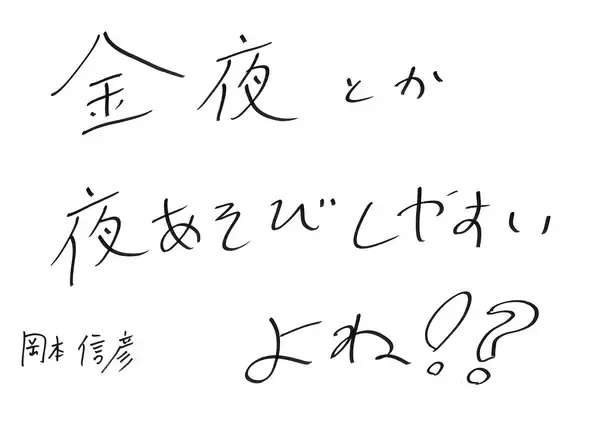 金夜とか
夜あそびしやすい
よね!?
岡本信彦